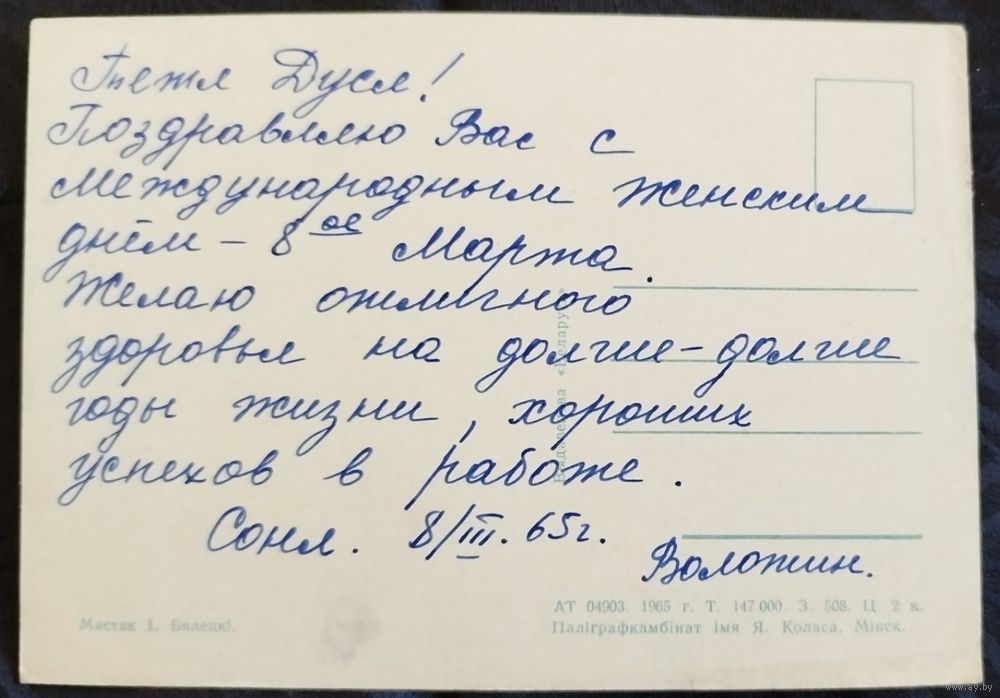 Тётя Дуся!
Поздравляю Вас с
Международным женским
днём – 8ое Марта.
Желаю отличного
здоровья на долгие-долгие
годы жизни, хороших
успехов в работе.
Соня. 8/III. 65г.
Воложин.
Мастак І. Бялецкі.
АТ 04903. 1965 г. Т. 147 000. З. 508. Ц. 2 к.
Паліграфкамбінат імя Я. Коласа, Мінск.
www.ay.by